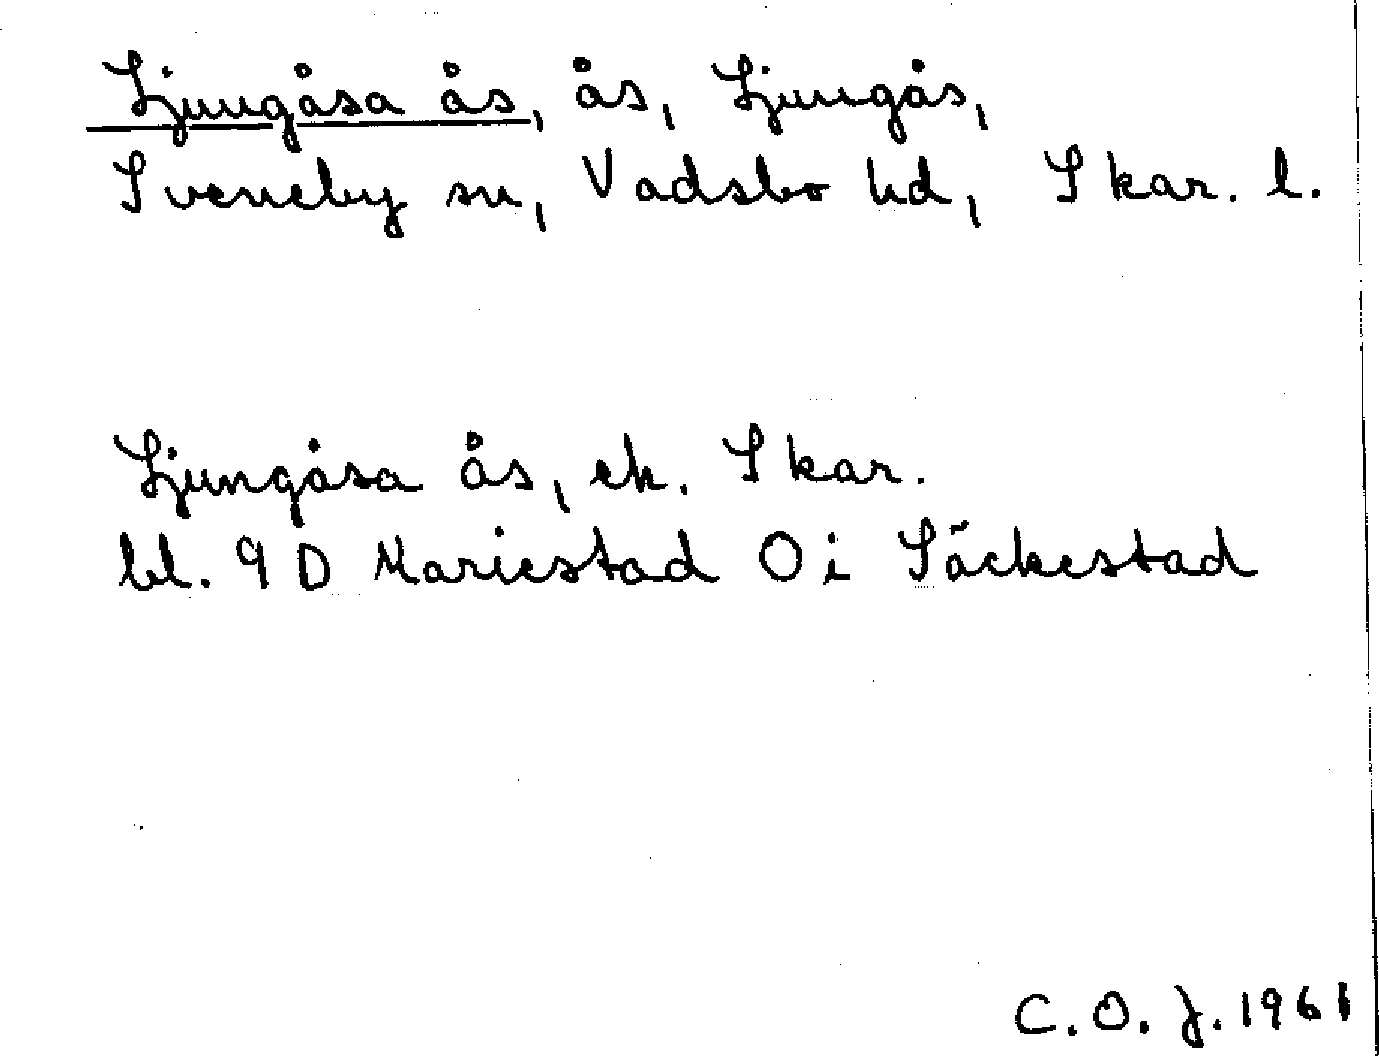 Ljungåsa ås, ås, Ljungås,
Sveneby sn, Vadsbo hd, Skar. l.
Ljungåsa ås, ek. Skar.
bl. 9 D Mariestad O i Säckestad
C. O. J. 1961